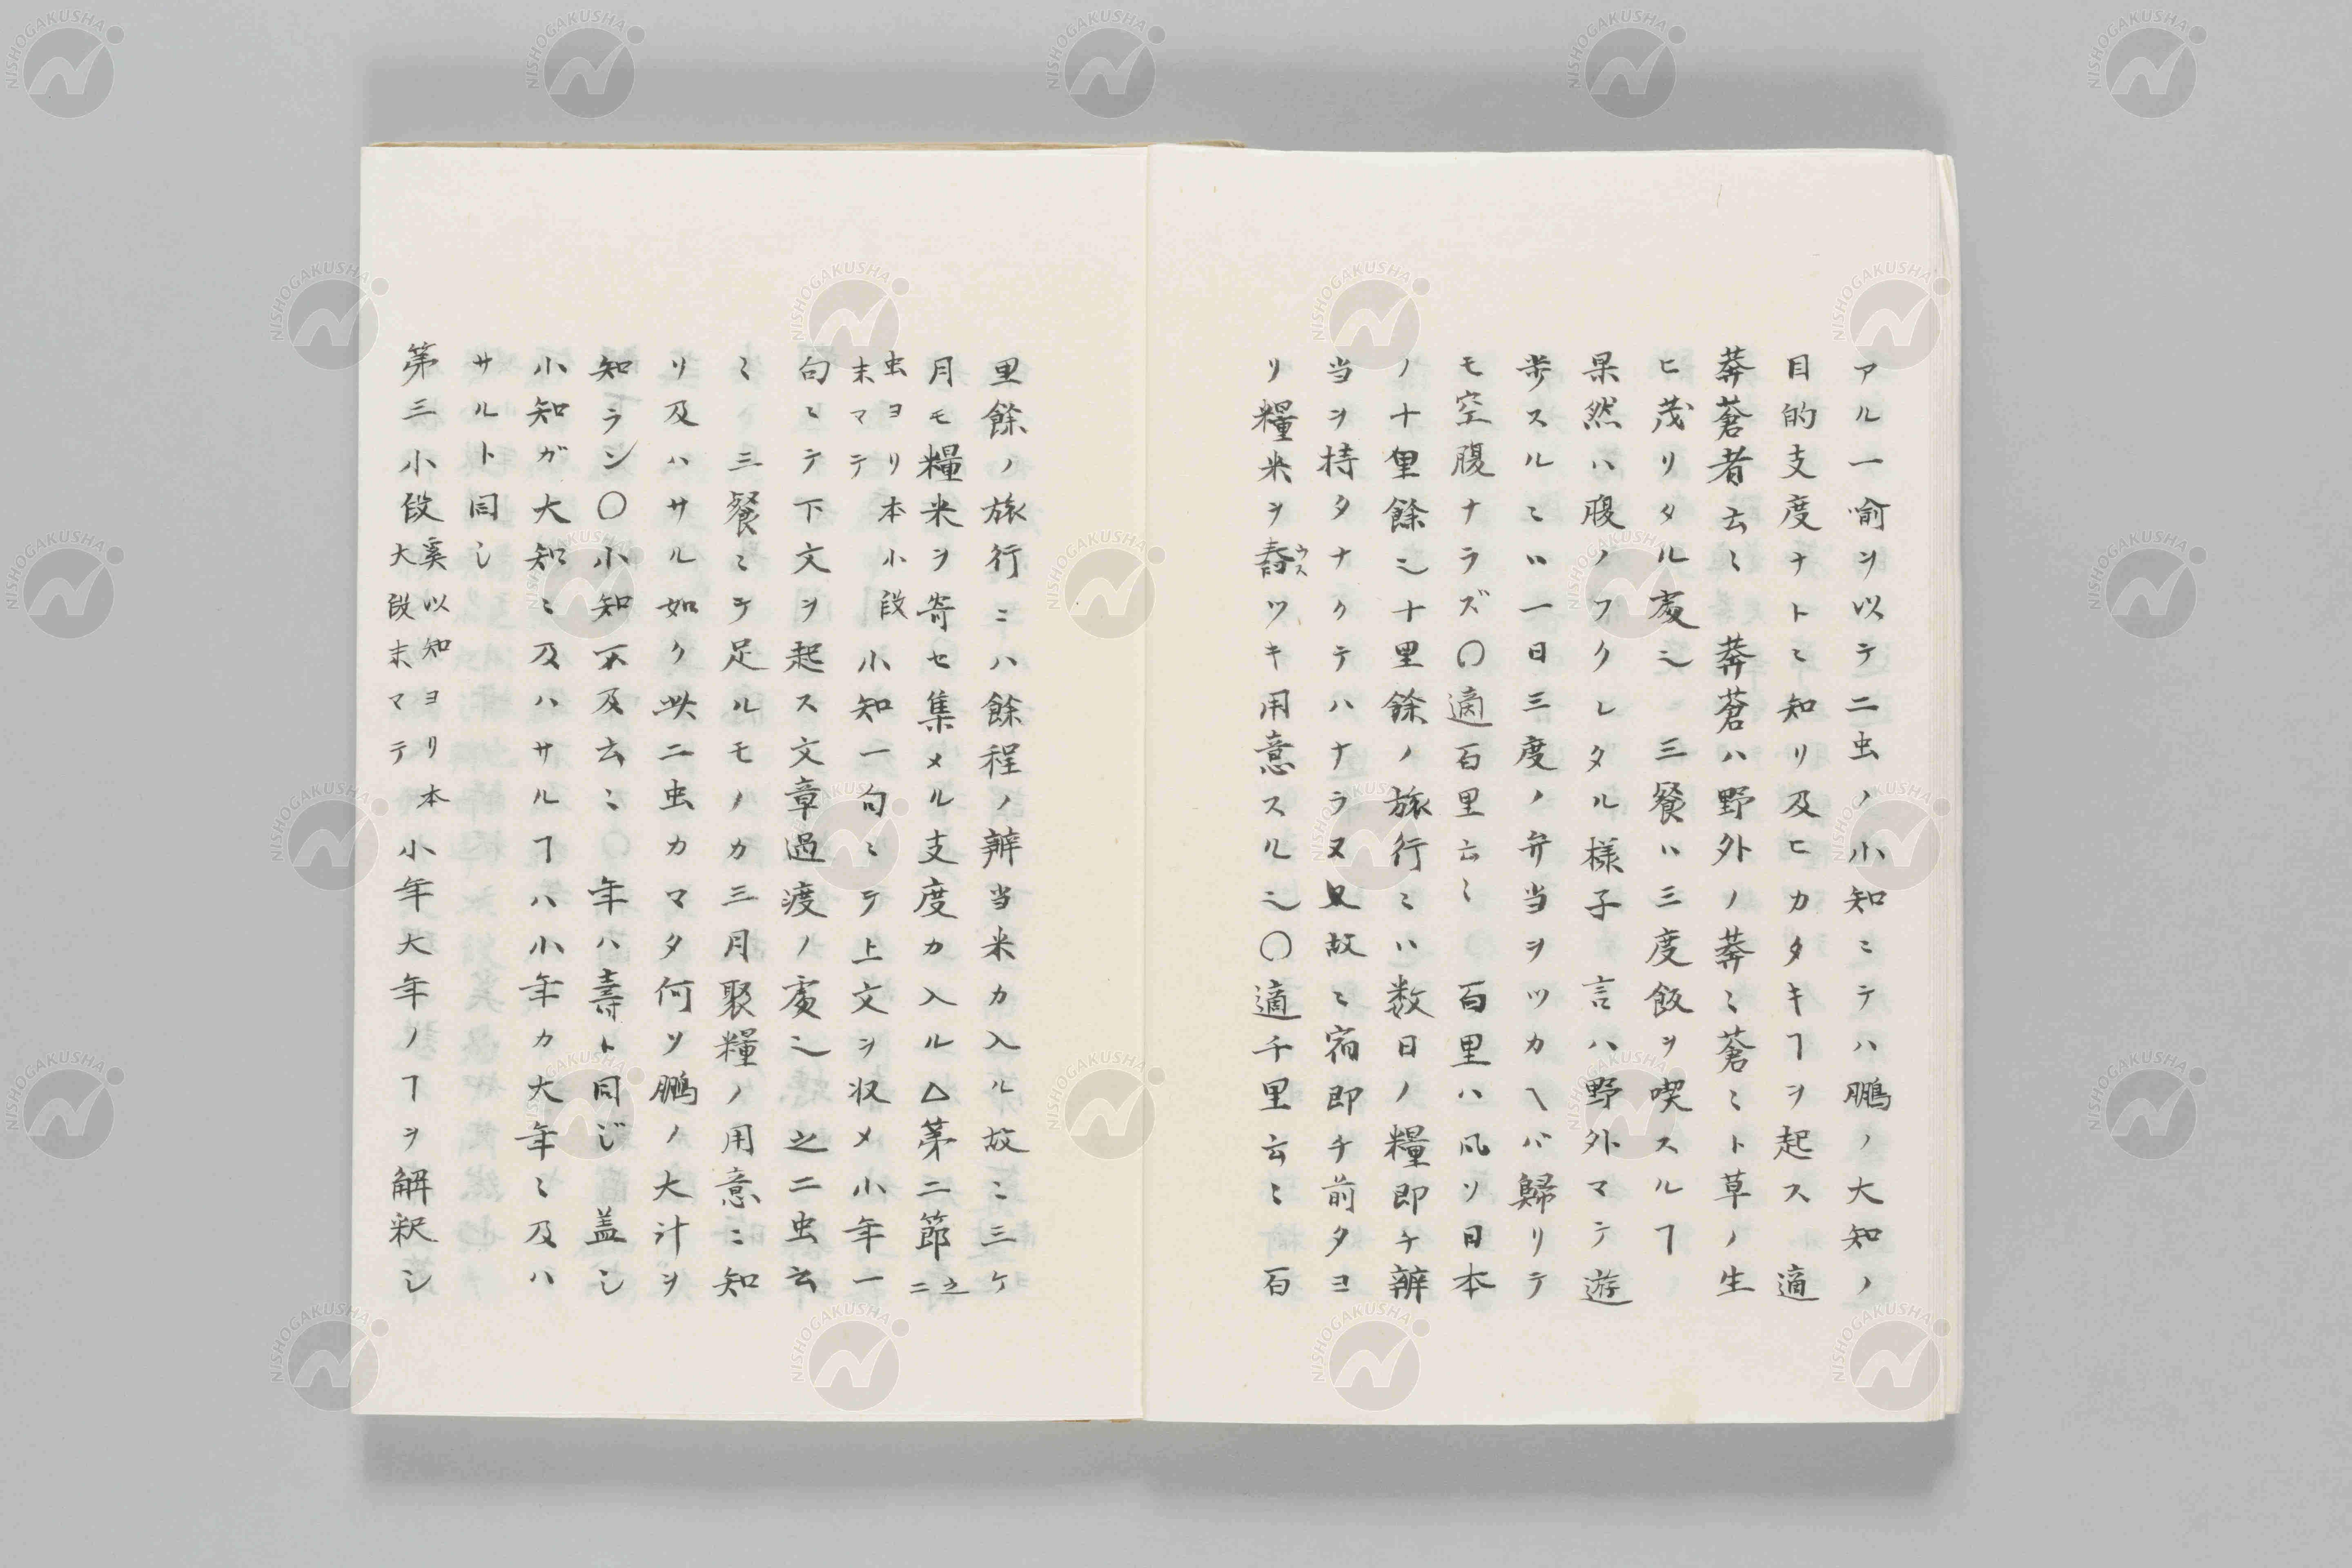 アル一喻ヲ以テ二虫ノ小知ニテハ鵬ノ大知ノ
目的支度ナトニ知リ及ヒカタキヿヲ起ス 適
莽蒼者云〻 莽蒼ハ野外ノ莽〻蒼〻ト草ノ生
ヒ茂リタル処也 三飡ハ三度飯ヲ喫スルヿ
果然ハ腹ノフクレタル様子 言ハ野外マテ遊
歩スルニハ一日三度ノ弁当ヲツカヘバ歸リテ
モ空腹ナラズ〇適百里云〻 百里ハ凡ソ日本
ノ十里餘也十里餘ノ旅行ニハ数日ノ糧即チ辨
当ヲ持タナクテハナラヌ 故ニ宿即チ前夕ヨ
リ糧米ヲ舂ウスツキ用意スル也〇適千里云〻 百
里餘ノ旅行ニハ餘程ノ辨当米カ入ル故ニ三ケ
月モ糧米ヲ寄セ集メル支度カ入ル△第二節之二
虫ヨリ本小段末マテ小知一句ニテ上文ヲ収メ小年一
句ニテ下文ヲ起ス文章過渡ノ処也 之二虫云
〻 三飡ニテ足ルモノカ三月聚糧ノ用意ニ知
リ及ハサル如ク此二虫カマタ何ソ鵬ノ大汁ヲ
知ラン〇小知不及云〻 年ハ壽ト同じ 盖し
小知ガ大知ニ及ハサルヿハ小年カ大年ニ及ハ
サルト同し
第三小段奚以知ヨリ本大段末マテ 小年大年ノヿヲ解釈シ